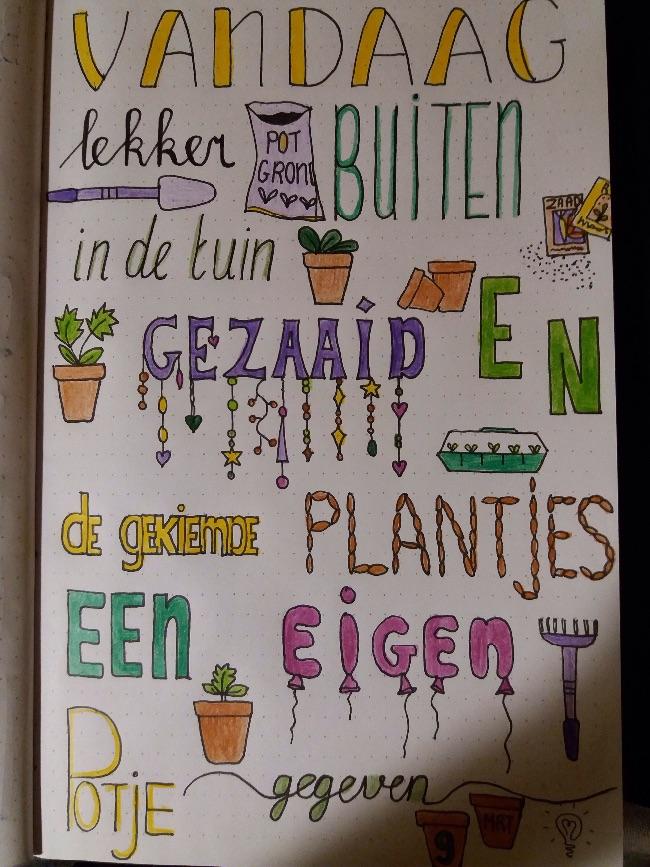 VANDAAG
lekker POT GROND BUITEN
ZAAD
in de tuin
GEZAAID EN
de GEKIEMDE PLANTJES
EEN EIGEN
POTJE gegeven
9 MRT